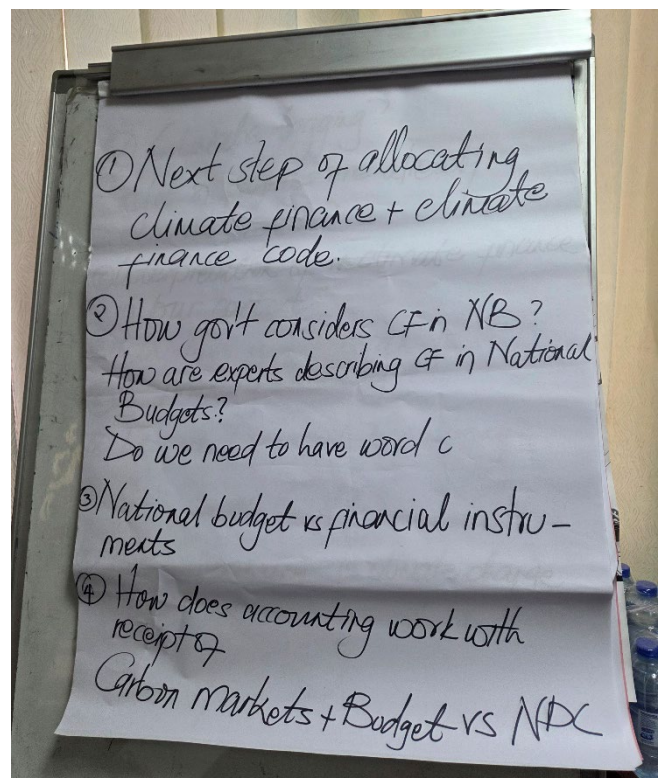 ① Next step of allocating
climate finance + climate
finance code.
② How gov't considers CF in NB?
How are experts describing CF in National
Budgets?
Do we need to have word c
③ National budget vs financial instru-
ments
④ How does accounting work with
receipt of
Carbon markets + Budget vs NDC